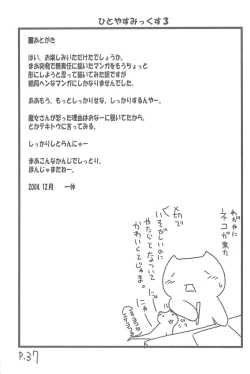 ひとやすみっくす3
■あとがき
はい、お楽しみいただけたでしょうか。
まあ発売で無責任に描いたマンガをもうちょっと
形にしようと思って描いてみた訳ですが
結局ヘンなマンガにしかなりませんでした。
ああもう、もっとしっかりせな、しっかりするんやー。
魔女さんが怒った理由はおなーに覗いてたから。
とかテキトウに言ってみる。
しっかりしとらんにゅー
まあこんなかんじでしっとり。
ほんじゃまたねー。
2004.12月 一休
わがやに
ネコが来た
〆切で
いそがしいのに
やたらとなついて
かわいくてじゃま。
にゃー
にゃー
P.37